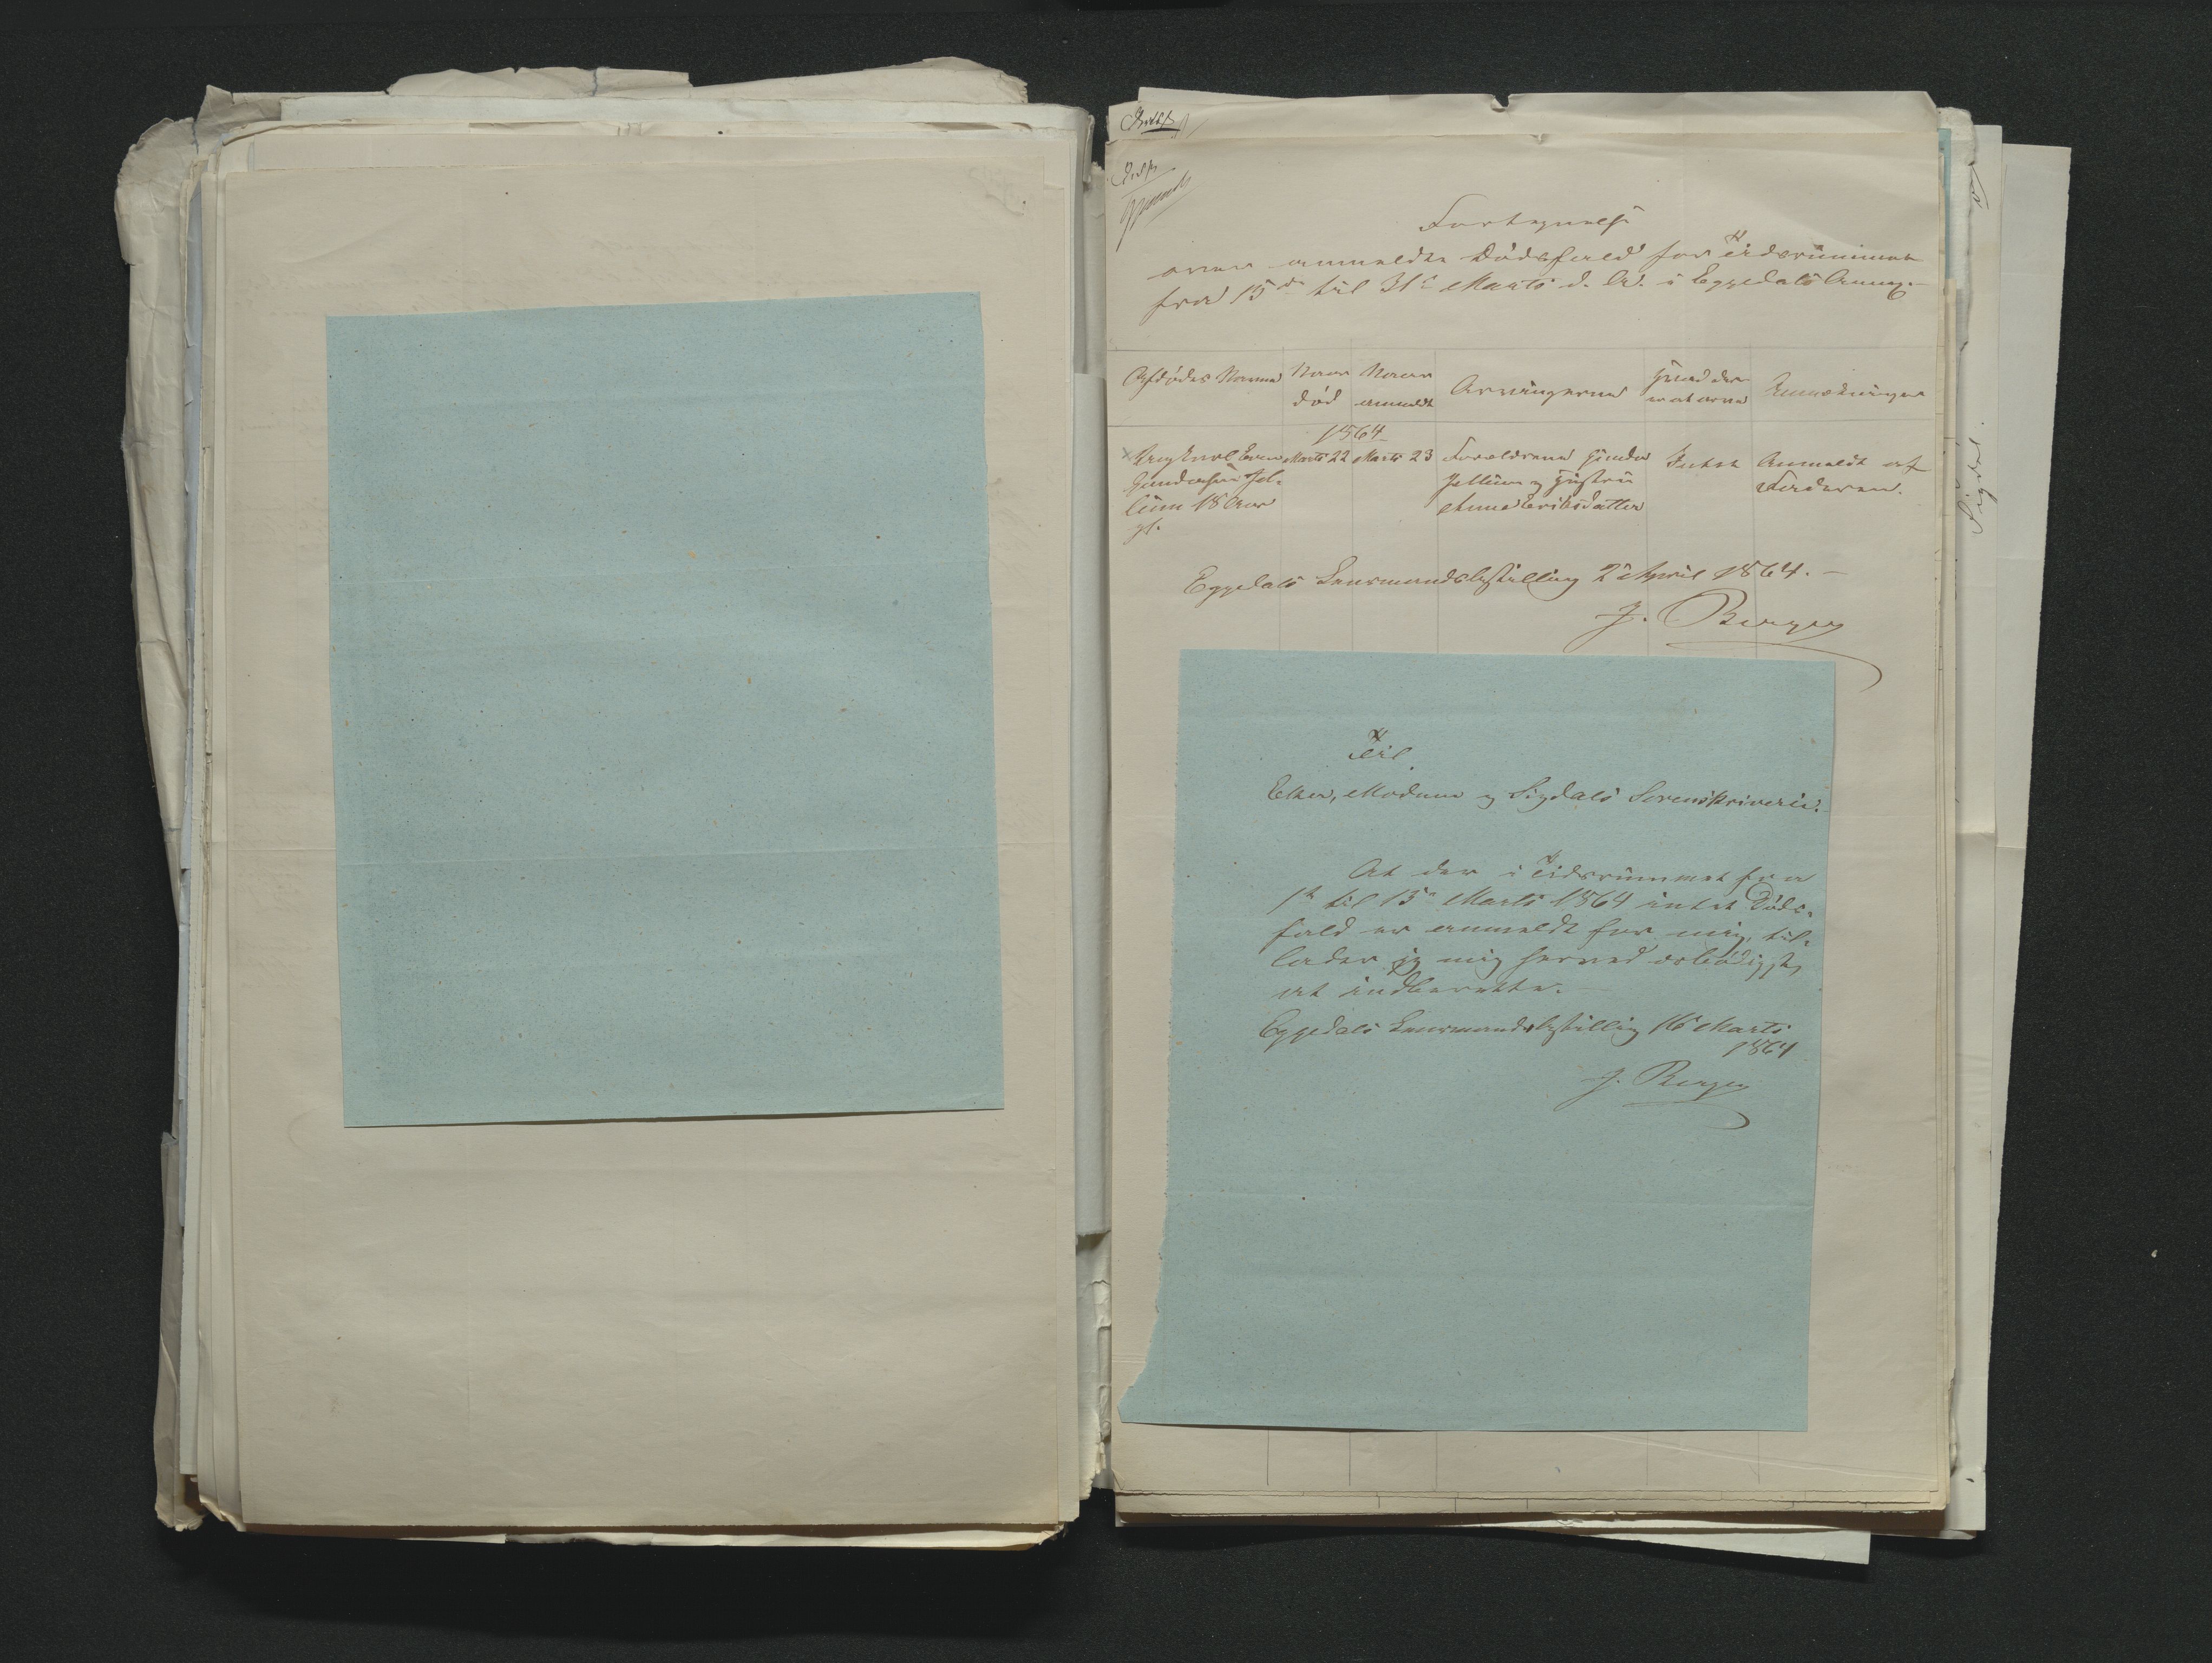 Fortegnelse
over anmeldte Dødsfald for Tidsrummet
fra 15de til 31te Marts d. A. i Eggedals Annex.
Afdødes Navne
Naar død
Naar anmeldt
Arvingerne
Hvad der er at arve
Anmærkninger
1864
Ungkarl Even
Gundersen Jel-
luum 18 Aar
gl.
Marts 22
Marts 23
Forældrene Gunder
Jelluum og Hustru
Anne Eriksdatter
Intet
Anmeldt af
Faderen.
Eggedals Lensmandsbestilling 2 April 1864.
J. Berger
Til
Eker, Modum og Sigdals Sorenskriveri.
At der i Tidsrummet fra
1te til 15de Marts 1864 intet Døds-
fald er anmeldt for mig, til-
lader jeg mig herved ærbødigst
at indberette.
Eggedals Lensmandsbestilling 16 Marts
1864
J. Berger
Sigdal.